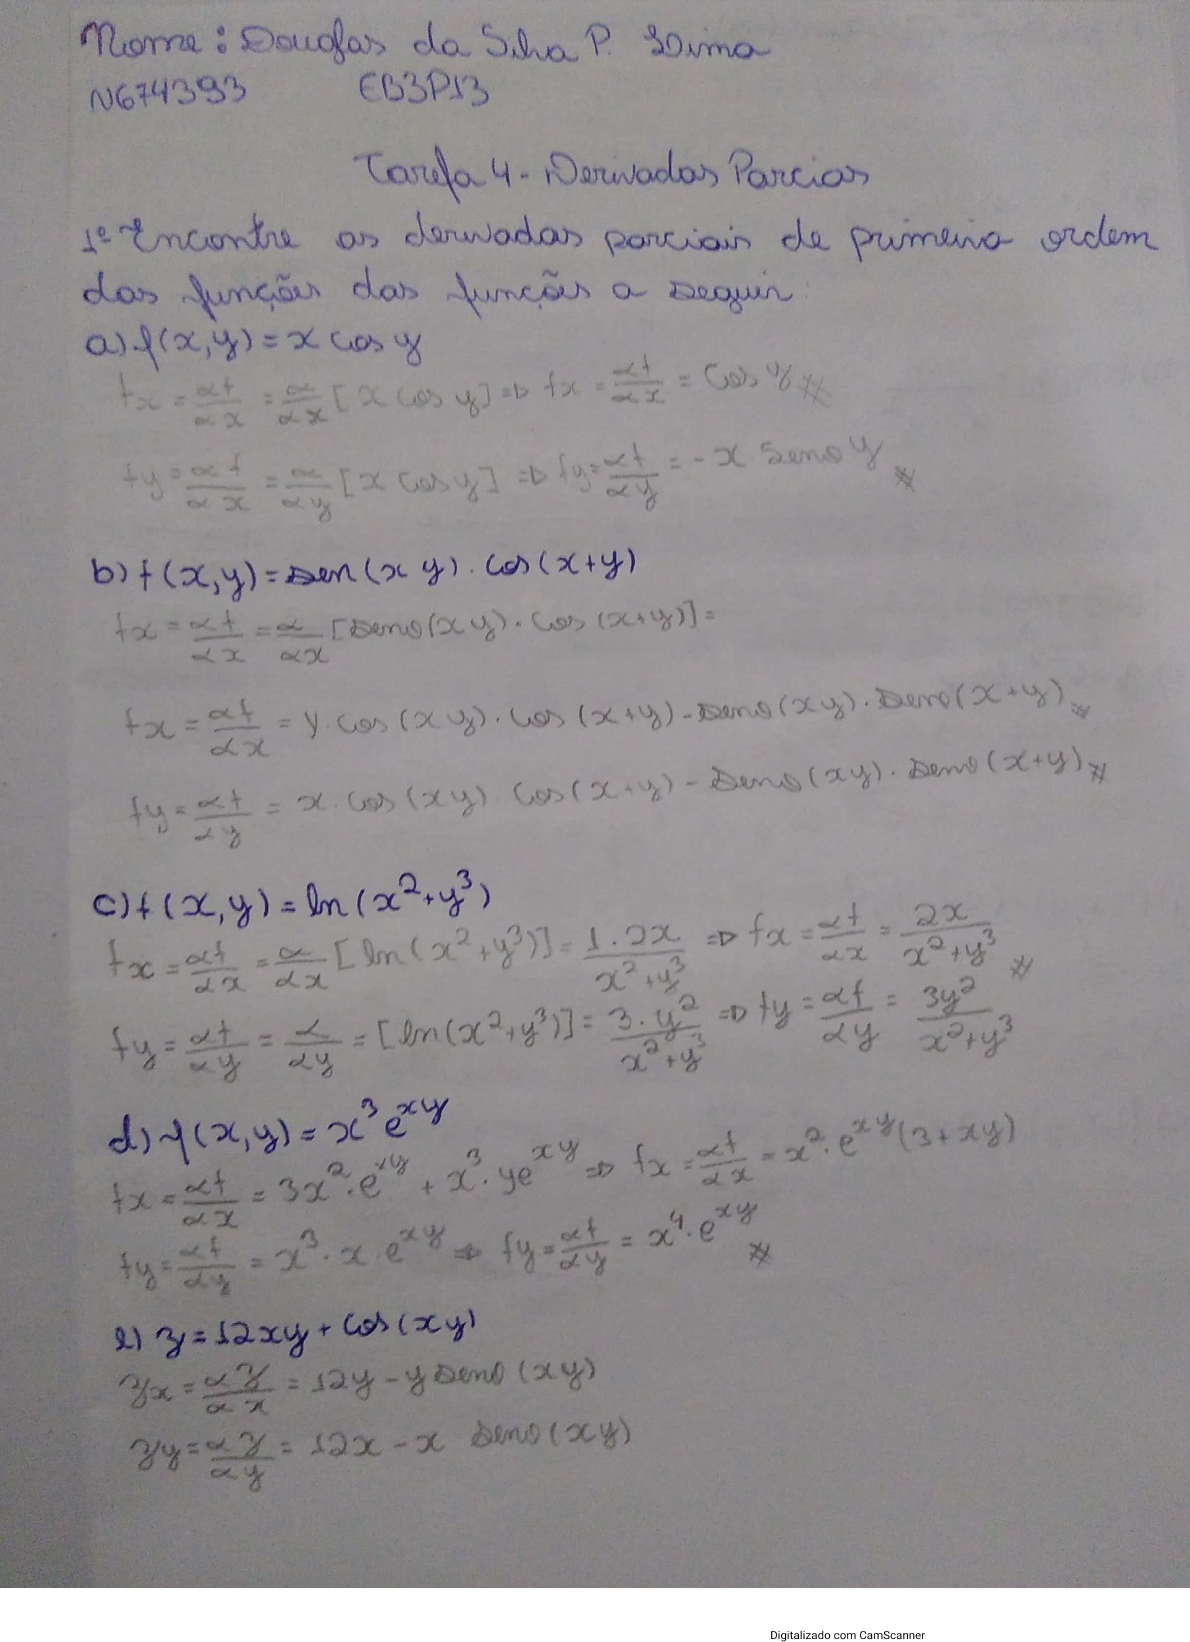 Nome: Douglas da Silva P. Lima
N674393 EB3P13
Tarefa 4 - Derivadas Parcias
1º Encontre as derivadas parciais de primeira ordem
das funções das funções a seguir
a) f(x,y) = x cos y
fx = αf/αx = α/αx [x cos y] => fx = αf/αx = cos y #
fy = αf/αx = α/αy [x cos y] => fy = αf/αy = -x. seno y #
b) f(x,y) = sen(x y) . cos(x+y)
fx = αf/αx = α/αx [seno(x y) . cos (x+y)] =
fx = αf/αx = y . cos (x y) . cos (x+y) - seno(x y) . seno(x+y) #
fy = αf/αy = x . cos (x y) cos(x+y) - seno(xy) . seno(x+y) #
c) f(x,y) = ln(x²+y³)
fx = αf/αx = α/αx [ln(x²+y³)] = 1.2x/x²+y³ => fx = αf/αx = 2x/x²+y³ #
fy = αf/αy = α/αy = [ln(x²+y³)] = 3.y²/x²+y³ => fy = αf/αy = 3y²/x²+y³
d) f(x,y) = x³ e^xy
fx = αf/αx = 3x² . e^xy + x³ . ye^xy => fx = αf/αx = x² . e^xy (3+xy)
fy = αf/αy = x³ . x . e^xy => fy = αf/αy = x⁴ . e^xy #
e) z = 12xy + cos(xy)
zx = αz/αx = 12y - y seno (xy)
zy = αz/αy = 12x - x seno(xy)
Digitalizado com CamScanner